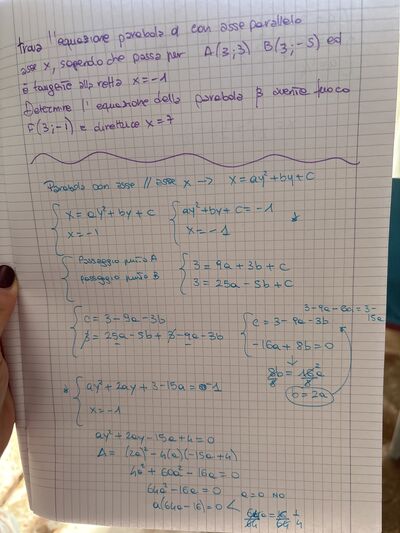 Trova l'equazione parabola α con asse parallelo
asse x, sapendo che passa per A(3;3) B(3;-5) ed
è tangente alla retta x=-1
Determina l'equazione della parabola β avente fuoco
F(3;-1) e direttrice x=7
Parabola con asse // asse x → x=ay²+by+c
{ x=ay²+by+c { ay²+by+c=-1 *
x=-1 x=-1
{ Passaggio punto A { 3=9a+3b+c
passaggio punto B 3=25a-5b+c
3-9a-6a=3-15a
{ c=3-9a-3b { c=3-9a-3b
3=25a-5b+3-9a-3b -16a+8b=0
↓
8b/8=16a/8
b=2a
* { ay²+2ay+3-15a=-1
x=-1
ay²+2ay-15a+4=0
Δ= (2a)²-4(a)(-15a+4)
4a²+60a²-16a=0
64a²-16a=0
a(64a-16)=0 < a=0 NO
64a/64=16/64 1/4